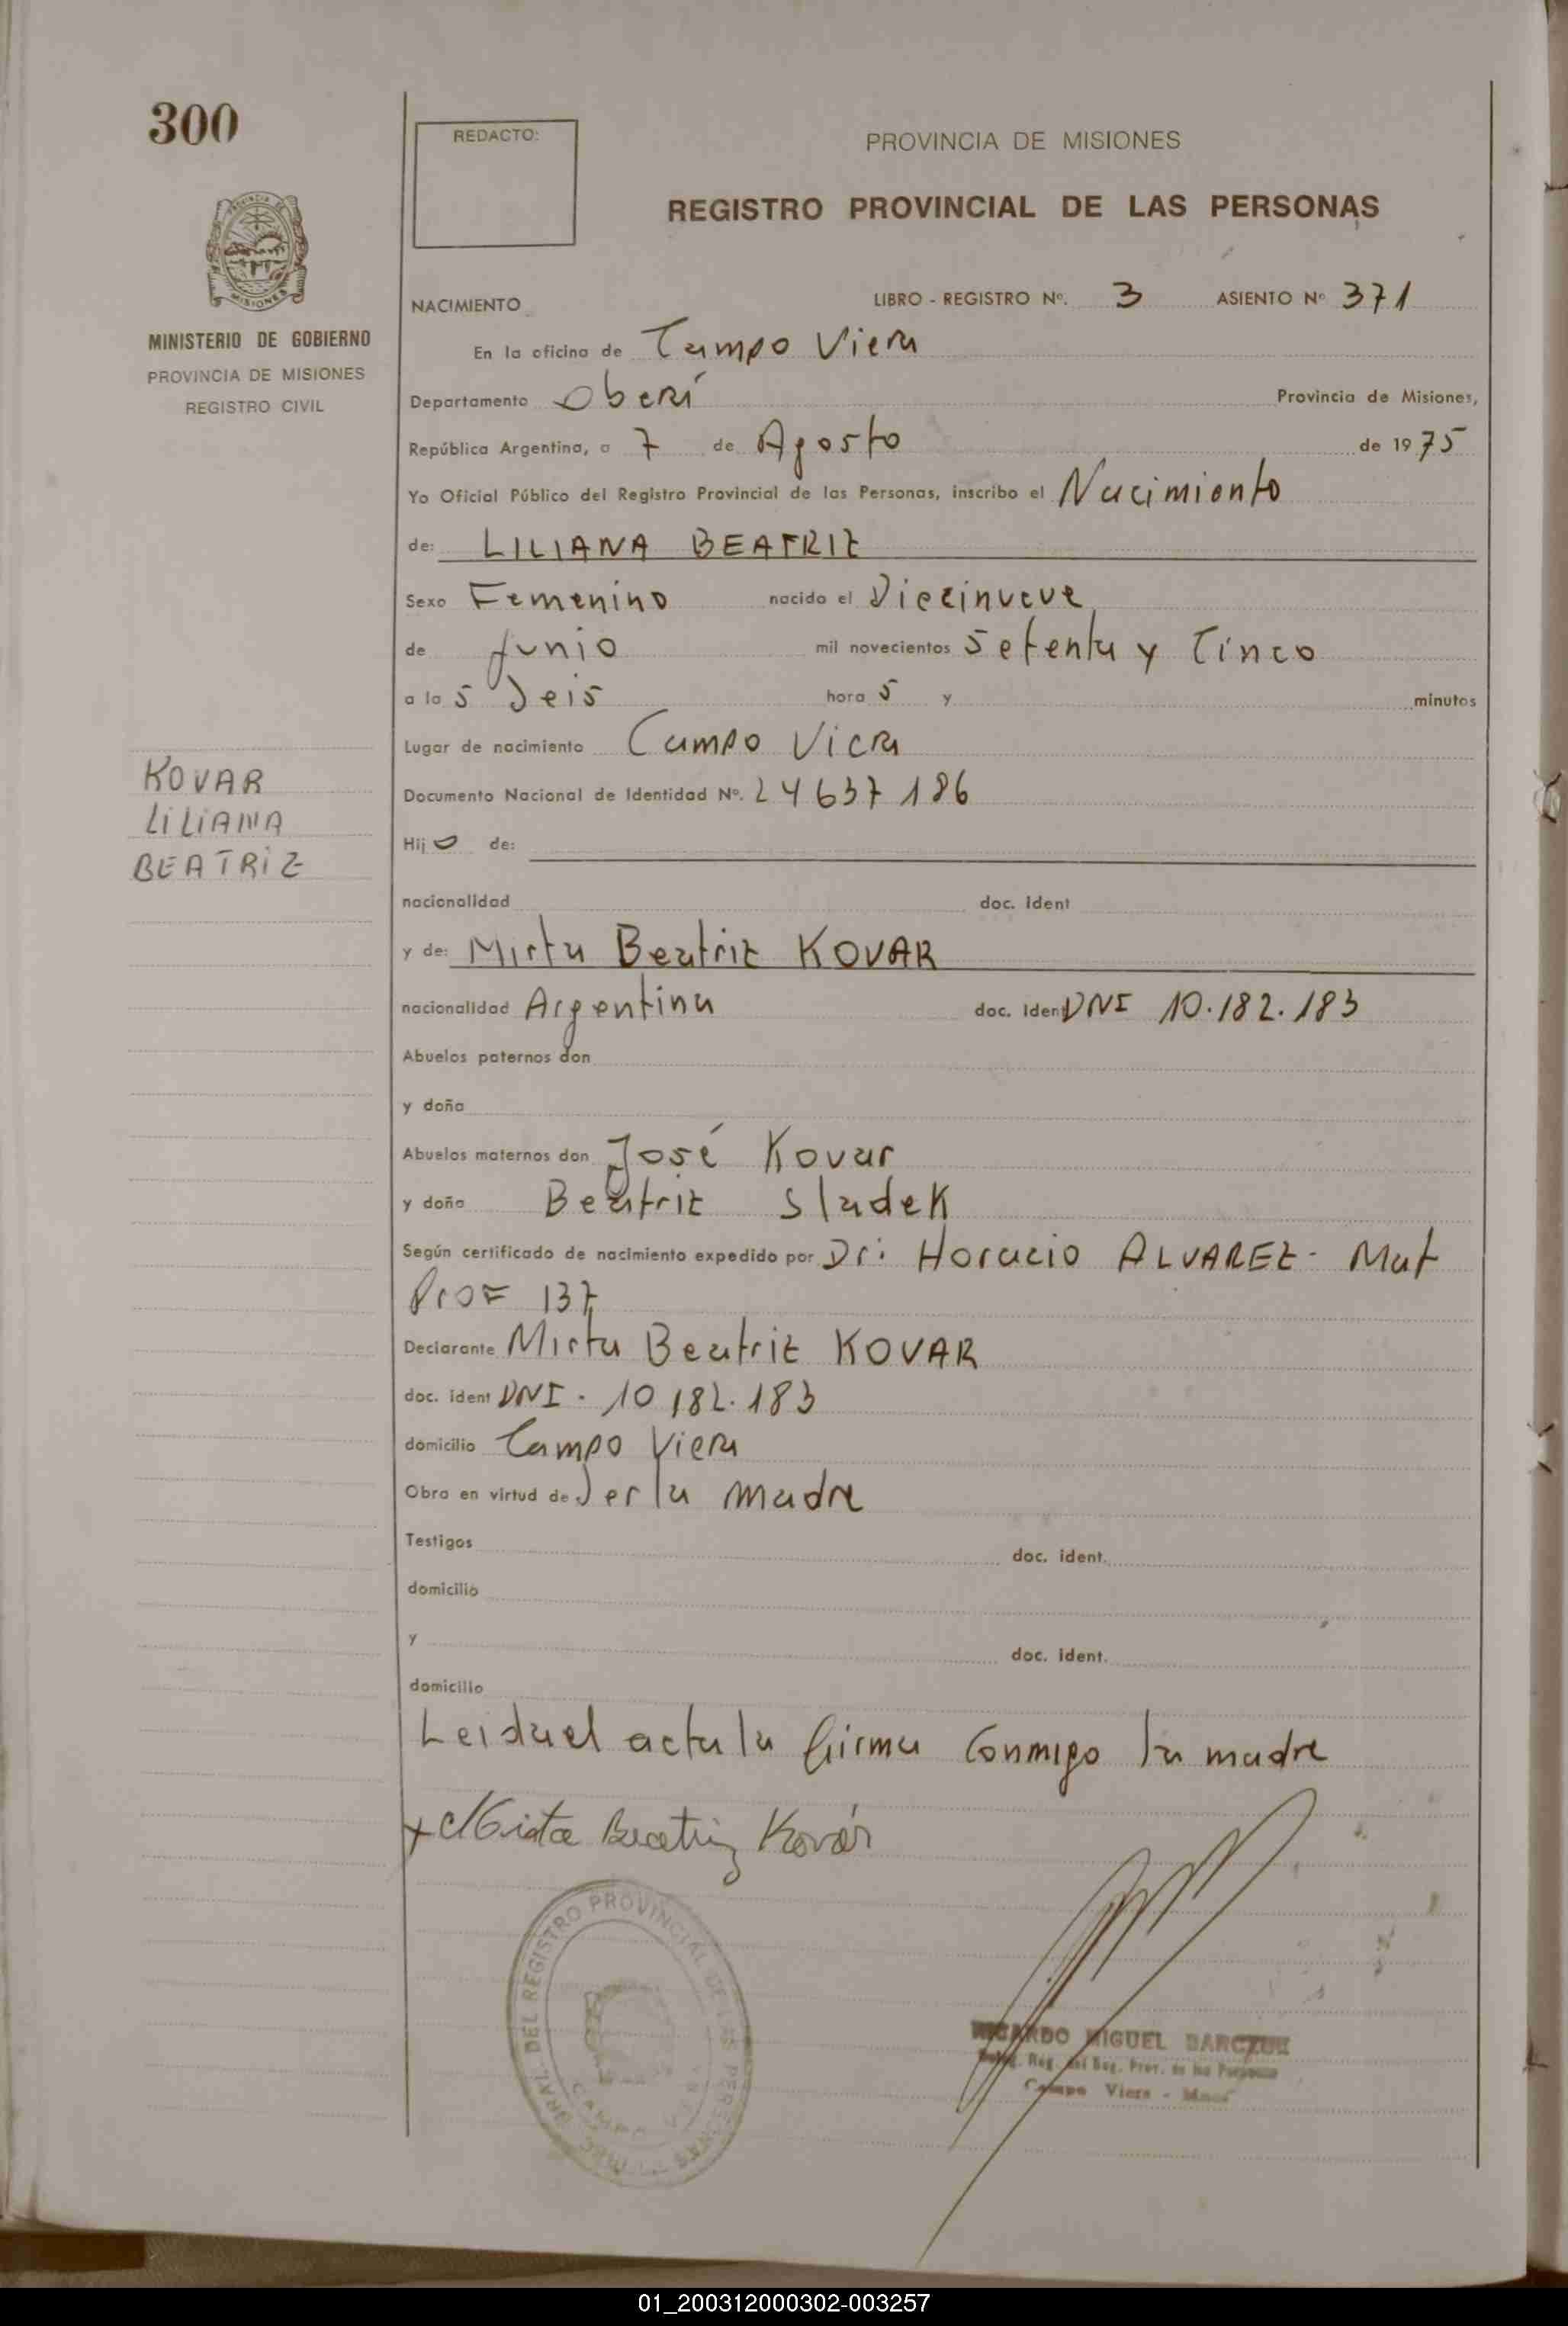 300
REDACTO:
PROVINCIA DE MISIONES
REGISTRO PROVINCIAL DE LAS PERSONAS
MISIONES
MINISTERIO DE GOBIERNO
PROVINCIA DE MISIONES
REGISTRO CIVIL
NACIMIENTO LIBRO - REGISTRO Nº. 3 ASIENTO Nº 371
En la oficina de Campo Viera
Departamento Oberá Provincia de Misiones,
República Argentina, a 7 de Agosto de 1975
Yo Oficial Público del Registro Provincial de las Personas, inscribo el Nacimiento
de: LILIANA BEATRIZ
Sexo Femenino nacido el Diecinueve
de Junio mil novecientos Setenta y Cinco
a la s Seis hora s y minutos
Lugar de nacimiento Campo Viera
Documento Nacional de Identidad Nº. 24637186
KOVAR
LILIANA
BEATRIZ
Hij o de:
nacionalidad doc. ident
y de: Mirta Beatriz KOVAR
nacionalidad Argentina doc. iden DNI 10.182.183
Abuelos paternos don
y doña
Abuelos maternos don José Kovar
y doña Beatriz Sladek
Según certificado de nacimiento expedido por Dr: Horacio ALVAREZ - Mat
Prof 137
Declarante Mirta Beatriz KOVAR
doc. ident DNI - 10 182.183
domicilio Campo Viera
Obra en virtud de Ser la madre
Testigos doc. ident.
domicilio
y doc. ident.
domicilio
Leida el acta la firma conmigo la madre
x Mirta Beatriz Kovár
DEL REGISTRO PROVINCIAL DE LAS PERSONAS
CAMPO
RICARDO MIGUEL
Campo Viera -
01_200312000302-003257